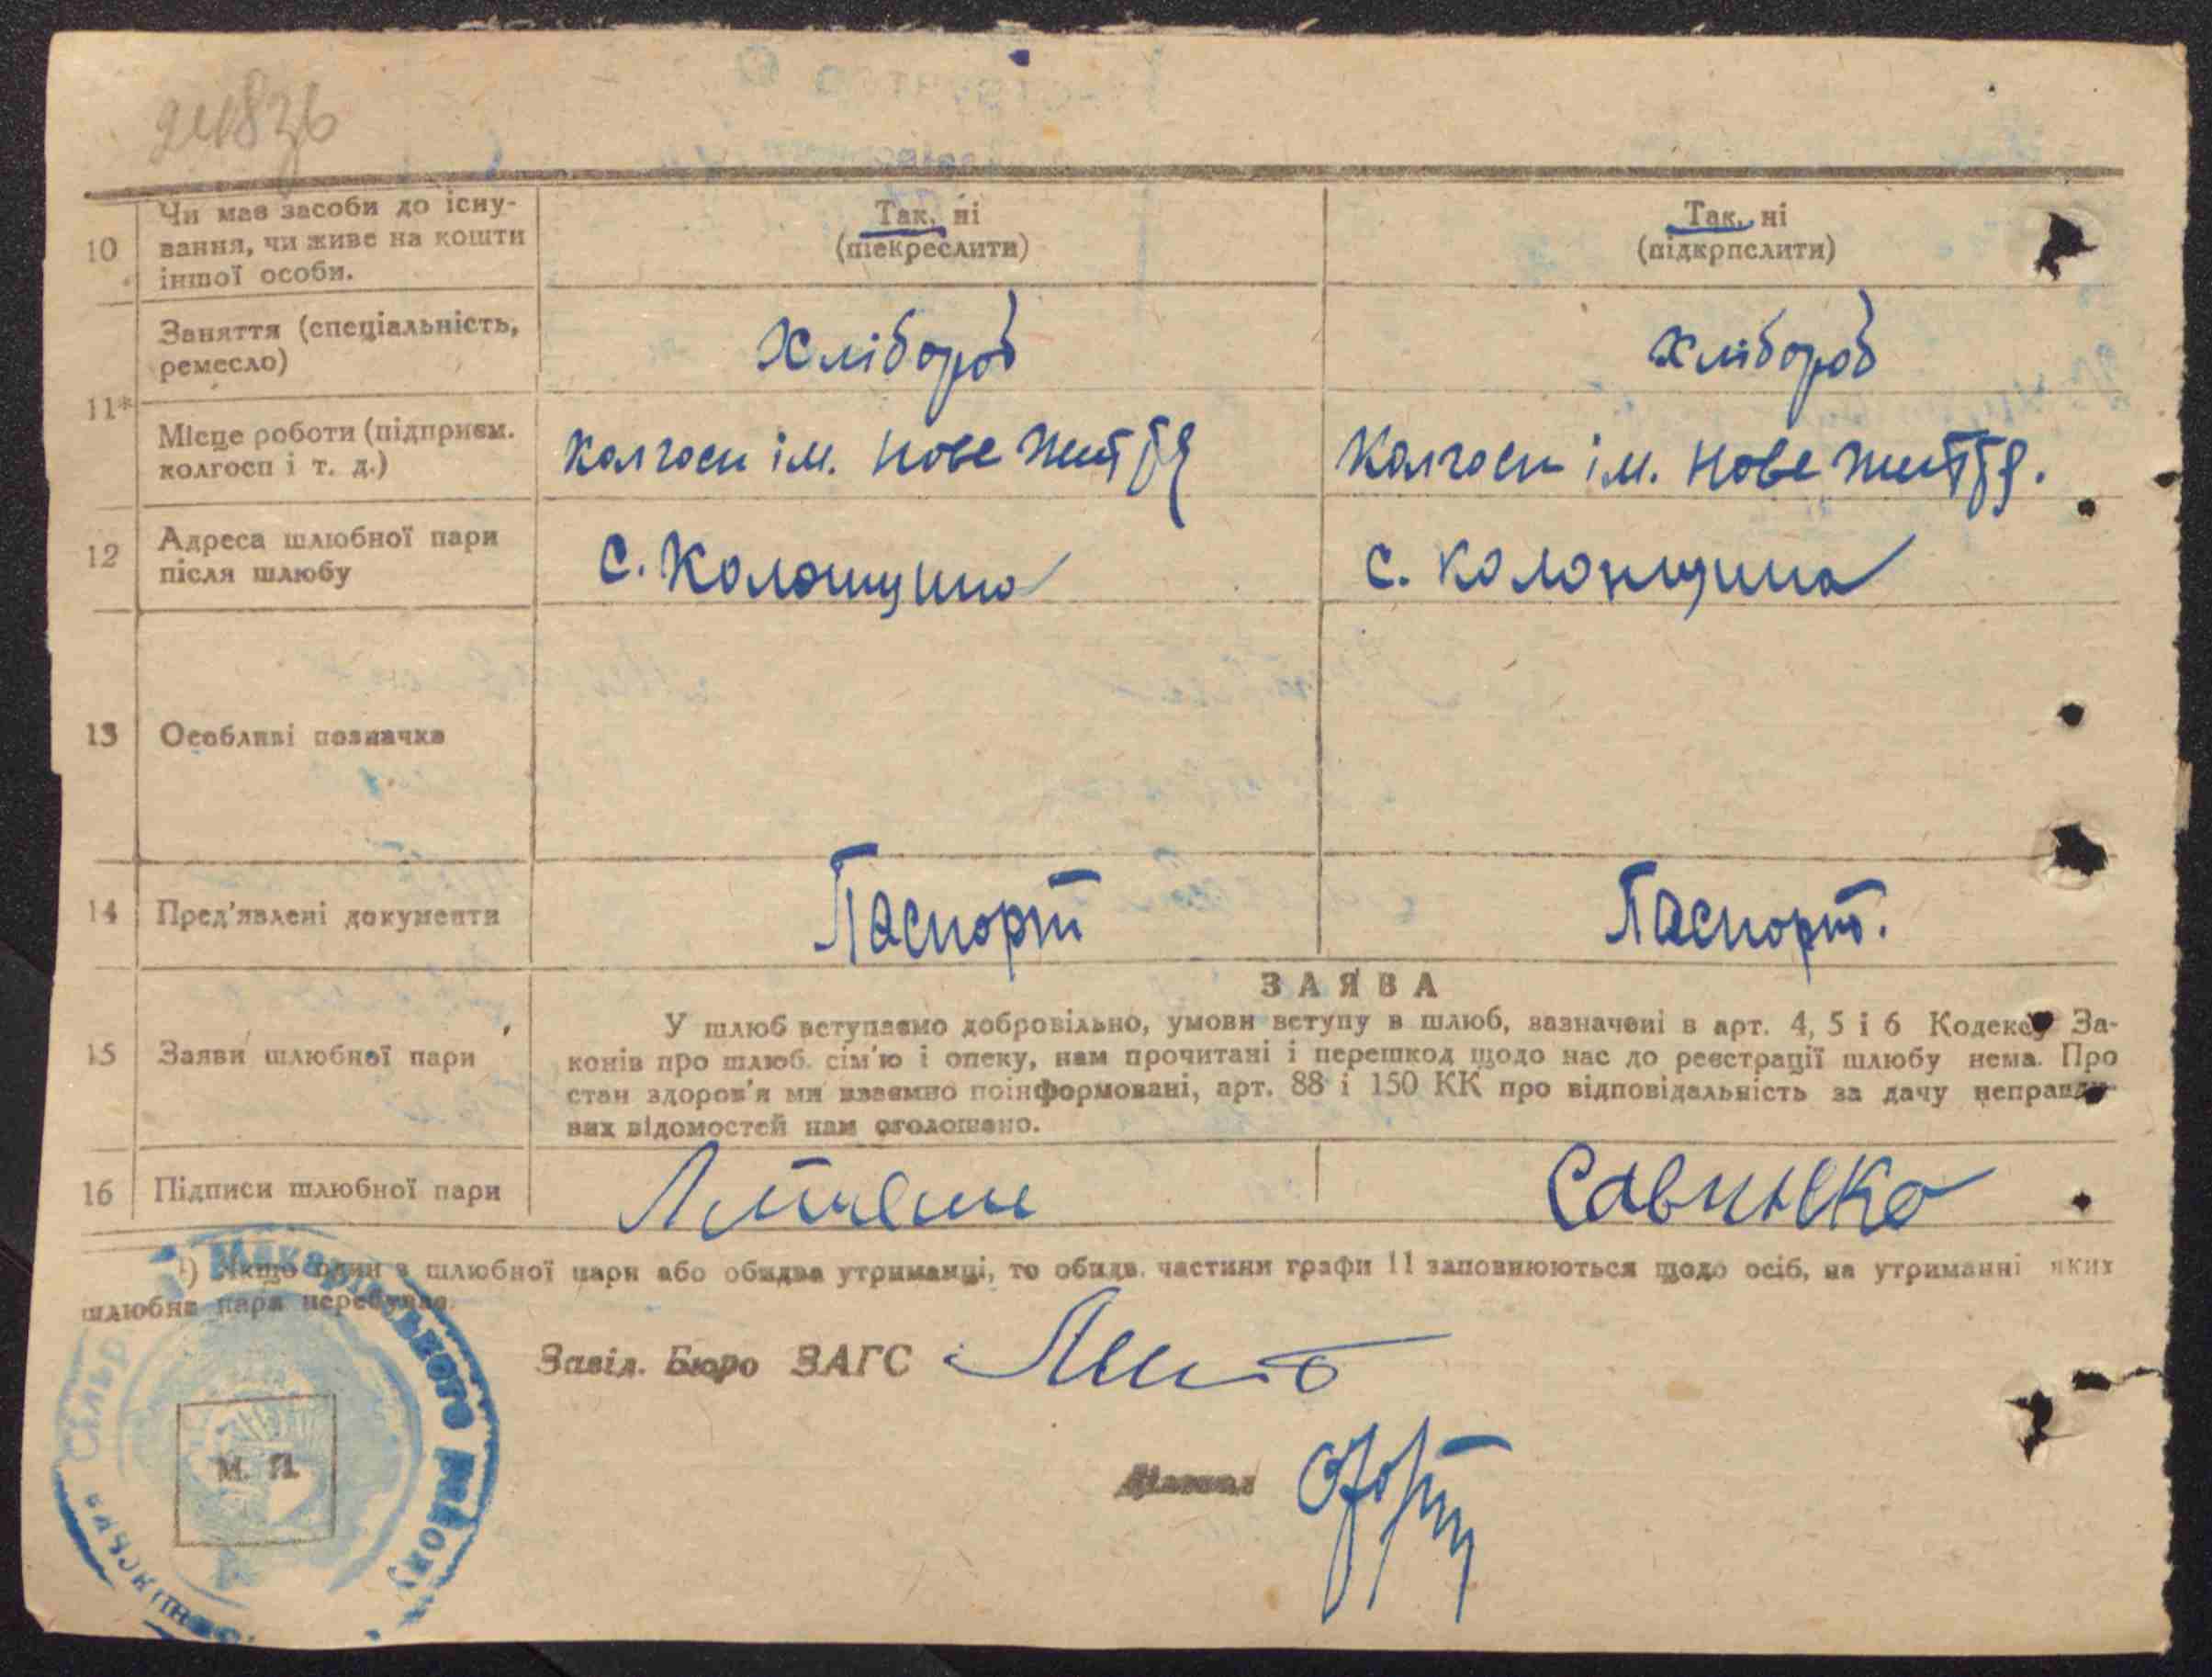 10 Чи має засоби до існу-
вання, чи живе на кошти
іншої особи.
Так, ні
(підкреслити)
Так, ні
(підкрпслити)
11*
Заняття (спеціальність,
ремесло)
Хлібороб
Хлібороб
Місце роботи (підприєм.
колгосп і т. д.)
Колгосп ім. Нове життя
Колгосп ім. Нове життя.
12 Адреса шлюбної пари
після шлюбу
с. Колонщина
с. Колонщина
13 Особливі позначки
14 Пред'явлені документи
Паспорт
Паспорт.
15 Заяви шлюбної пари
ЗАЯВА
У шлюб вступаємо добровільно, умови вступу в шлюб, зазначені в арт. 4, 5 і 6 Кодексу За-
конів про шлюб. сім'ю і опеку, нам прочитані і перешкод щодо нас до реєстрації шлюбу нема. Про
стан здоров'я ми взаємно поінформовані, арт. 88 і 150 КК про відповідальність за дачу неправди-
вих відомостей нам оголошено.
16 Підписи шлюбної пари
Савченко
¹) Якщо один з шлюбної пари або обидва утриманці, то обидв. частини графи 11 заповнюються щодо осіб, на утриманні яких
шлюбна пара перебуває.
Завід. Бюро ЗАГС
М. П.
Макарівського району